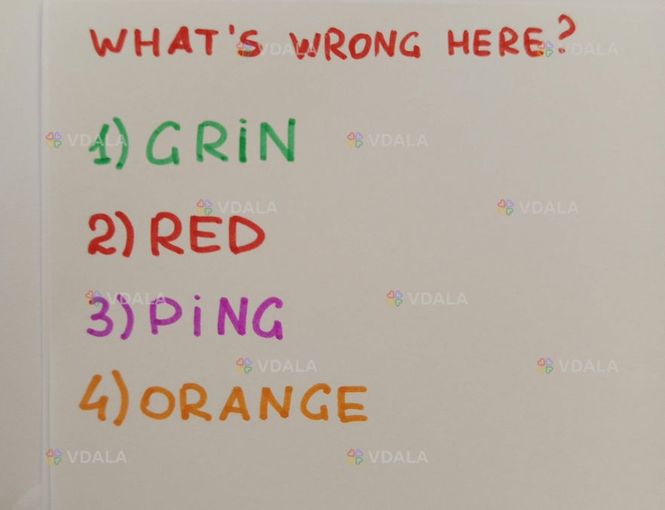 WHAT'S WRONG HERE?
1) GRiN
2) RED
3) PiNG
4) ORANGE
VDALA
VDALA
VDALA
VDALA
VDALA
VDALA
VDALA
VDALA
VDALA
VDALA
VDALA
VDALA